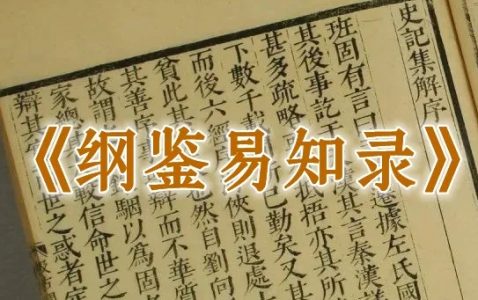 《纲鉴易知录》
史記集解序
班固有言曰 遷據左氏國
其後事訖于 漢其言秦漢
甚多疎略 抵捂亦其所
下數千載 斯已勤矣又
而後六經 俠則退處
貧此其 然自劉向
其善序 而不華質
故謂 駰以為固
家 較信命世之
辯其 世之惑者